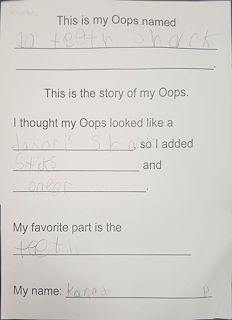 This is my Oops named
10 teeth Shark
This is the story of my Oops.
I thought my Oops looked like a
so I added
Sticks and
My favorite part is the
teeth
My name: